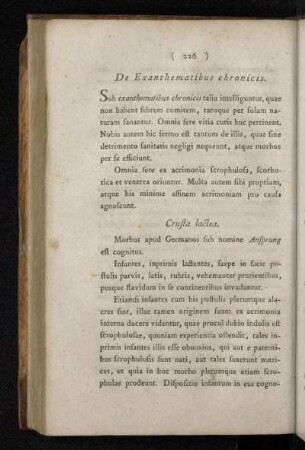 ( 226 )
De Exanthematibus chronicis.
Sub exanthematibus chronicis talia intelliguntur, quae
non habent febrem comitem, raroque per solam na-
turam sanantur. Omnia fere vitia cutis huc pertinent.
Nobis autem hic sermo est tantum de illis, quae sine
detrimento sanitatis negligi nequeunt, atque morbos
per se efficiunt.
Omnia fere ex acrimonia scrophulosa, scorbu-
tica et venerea oriuntur. Multa autem sibi propriam,
atque his minime affinem acrimoniam pro causa
agnoscunt.
Crusta lactea.
Morbus apud Germanos sub nomine Ansprung
est cognitus.
Infantes, inprimis lactentes, saepe in facie pu-
stulis parvis, latis, rubris, vehementer prurientibus,
pusque flavidum in se continentibus invaduntur.
Etiamsi infantes cum his pustulis plerumque ala-
cres sint, illae tamen originem suam ex acrimonia
interna ducere videntur, quae procul dubio indolis est
scrophulosae, quoniam experientia ostendit, tales in-
primis infantes illis esse obnoxios, qui aut e parenti-
bus scrophulosis sunt nati, aut tales suxerunt nutri-
ces, et quia in huc morbo plerumque etiam scro-
phulae prodeunt. Dispositio infantum in eus cogno-